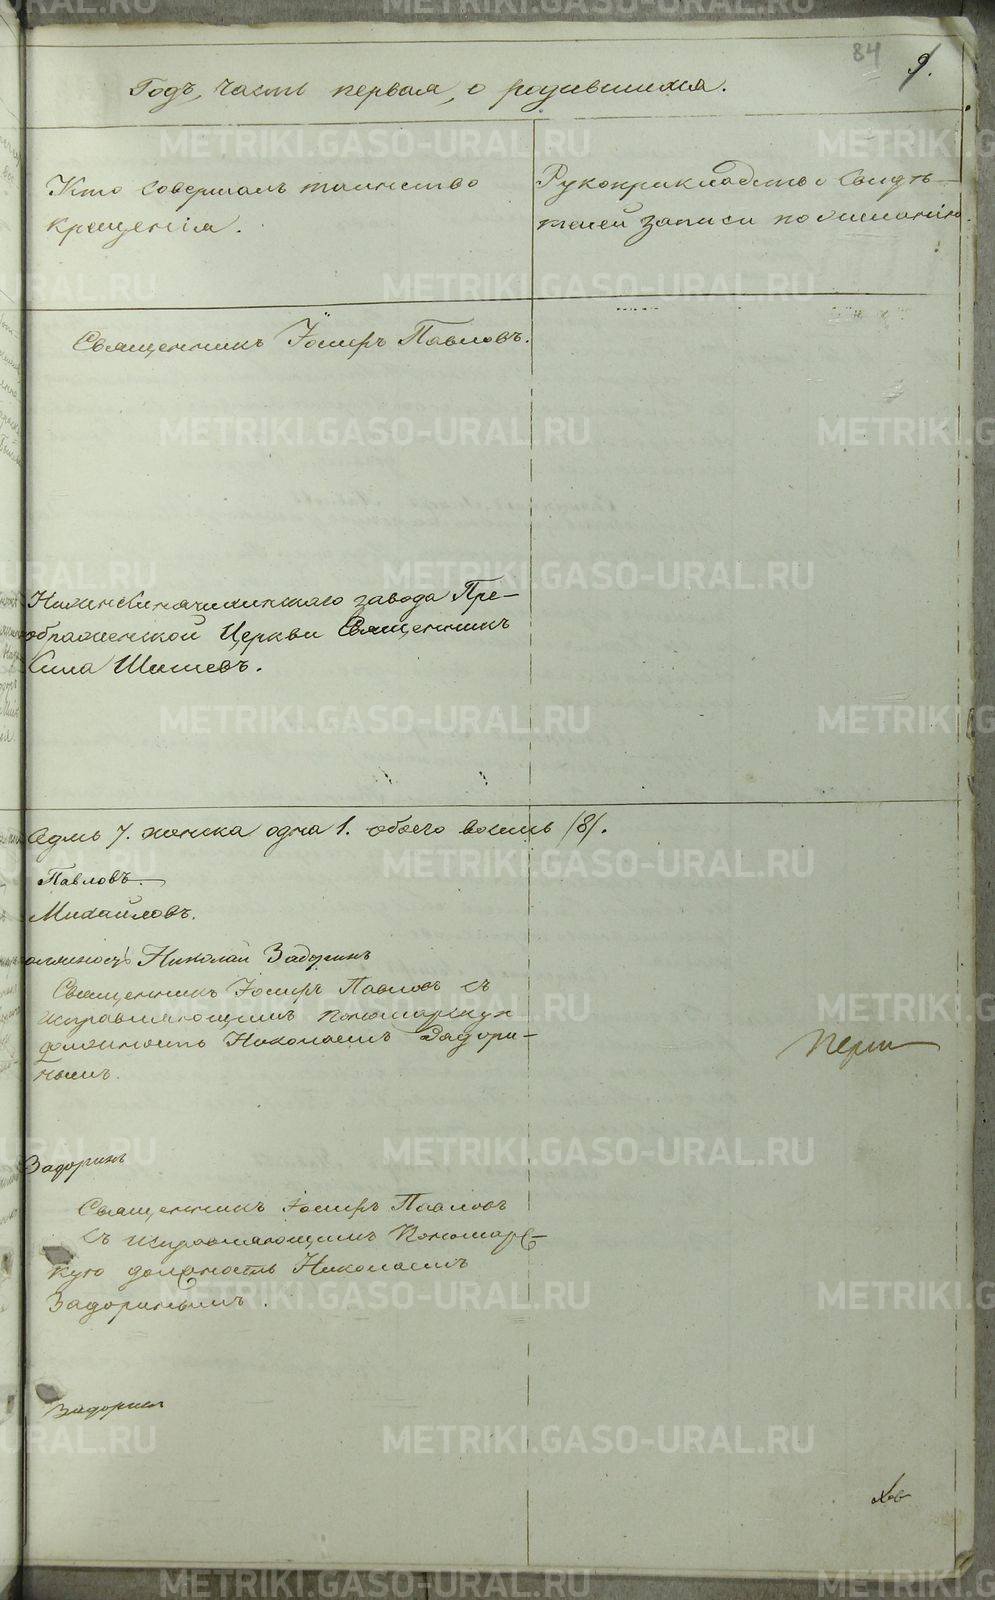 84
9.
Годъ, часть первая, о родившихся.
Кто совершалъ таинство
крещенія.
Рукоприкладство свидѣ-
телей записи по желанію.
Священникъ Іосифъ Павловъ.
завода Пре-
ображенской Церкви Священникъ
Сила Шишевъ.
седмь 7. женска одна 1. обоего восемь /8/.
Павловъ.
Михайловъ.
Николай Задоринъ
Священникъ Іосифъ Павловъ съ
исправляющимъ Пономарскую
должность Николаемъ Задори-
нымъ.
Перм
Задоринъ
Священникъ Іосифъ Павловъ
съ исправляющимъ Пономарс-
кую должность Николаемъ
Задоринымъ.
Задорин
METRIKI.GASO-URAL.RU